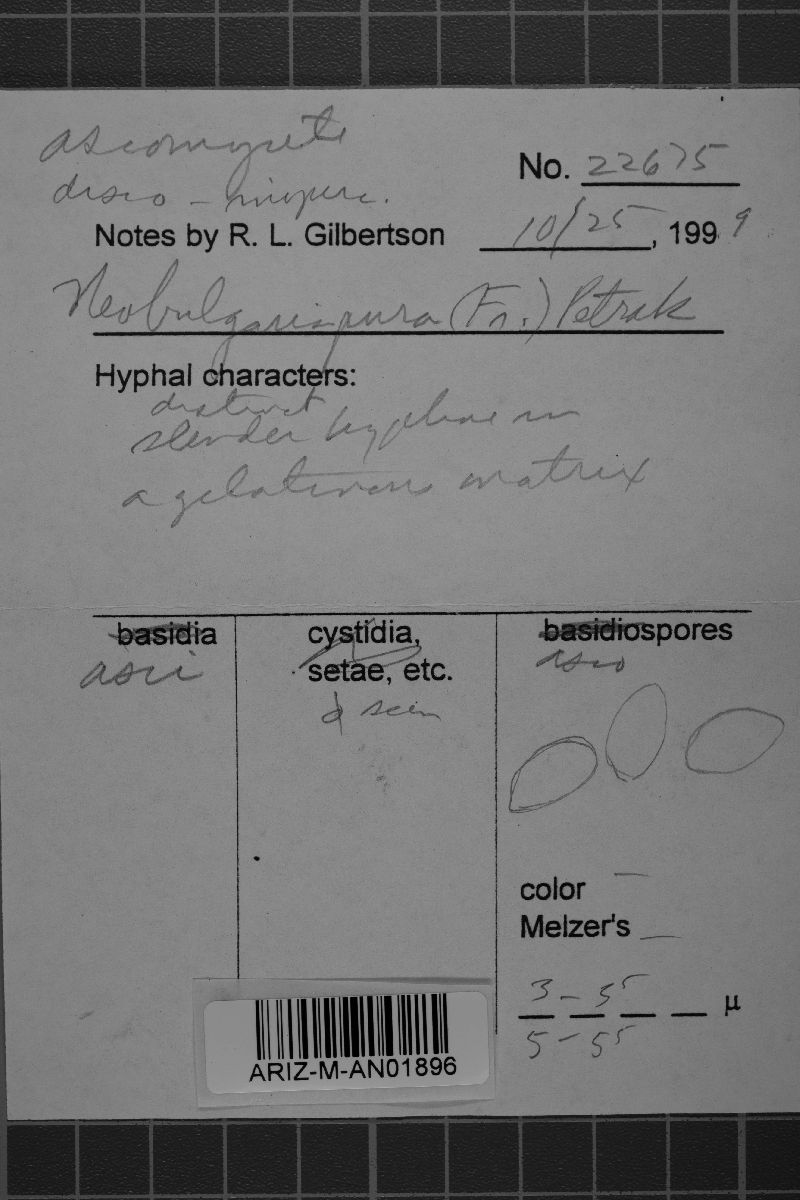 ascomycete
disco - inoperc.
No. 22675
Notes by R. L. Gilbertson 10/25, 1999
Neobulgaria pura (Fr.) Petrak
Hyphal characters:
distinct
slender hyphae in
a gelatinous matrix
basidia
asci
cystidia,
setae, etc.
basidiospores
asco
color —
Melzer's —
3 - 3 5
μ
5 - 5 5
ARIZ-M-AN01896